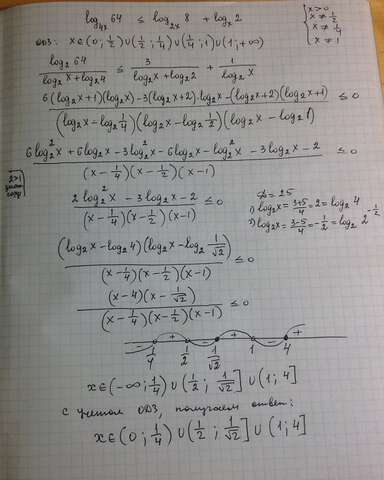 log₄ₓ 64 ≤ log₂ₓ 8 + logₓ 2
{ x>0
x ≠ 1/2
x ≠ 1/4
x ≠ 1
ОДЗ: x∈(0; 1/2)∪(1/2; 1/4)∪(1/4; 1)∪(1; +∞)
log₂ 64 / (log₂ x + log₂ 4) ≤ 3 / (log₂ x + log₂ 2) + 1 / log₂ x
(6(log₂ x+1)(log₂ x) - 3(log₂ x+2)·log₂ x - (log₂ x+2)(log₂ x+1)) / ((log₂ x - log₂ 1/4)(log₂ x - log₂ 1/2)(log₂ x - log₂ 1)) ≤ 0
(6log₂² x + 6log₂ x - 3log₂² x - 6log₂ x - log₂² x - 3log₂ x - 2) / ((x - 1/4)(x - 1/2)(x - 1)) ≤ 0
2>1
(2log₂² x - 3log₂ x - 2) / ((x - 1/4)(x - 1/2)(x - 1)) ≤ 0
D = 25
1) log₂ x = (3+5)/4 = 2 = log₂ 4
2) log₂ x = (3-5)/4 = -1/2 = log₂ 2^(-1/2)
((log₂ x - log₂ 4)(log₂ x - log₂ 1/√2)) / ((x - 1/4)(x - 1/2)(x - 1)) ≤ 0
((x - 4)(x - 1/√2)) / ((x - 1/4)(x - 1/2)(x - 1)) ≤ 0
- + - + - +
1/4 1/2 1/√2 1 4
x∈(-∞; 1/4) ∪ (1/2; 1/√2] ∪ (1; 4]
с учетом ОДЗ, получаем ответ:
x∈(0; 1/4) ∪ (1/2; 1/√2] ∪ (1; 4]